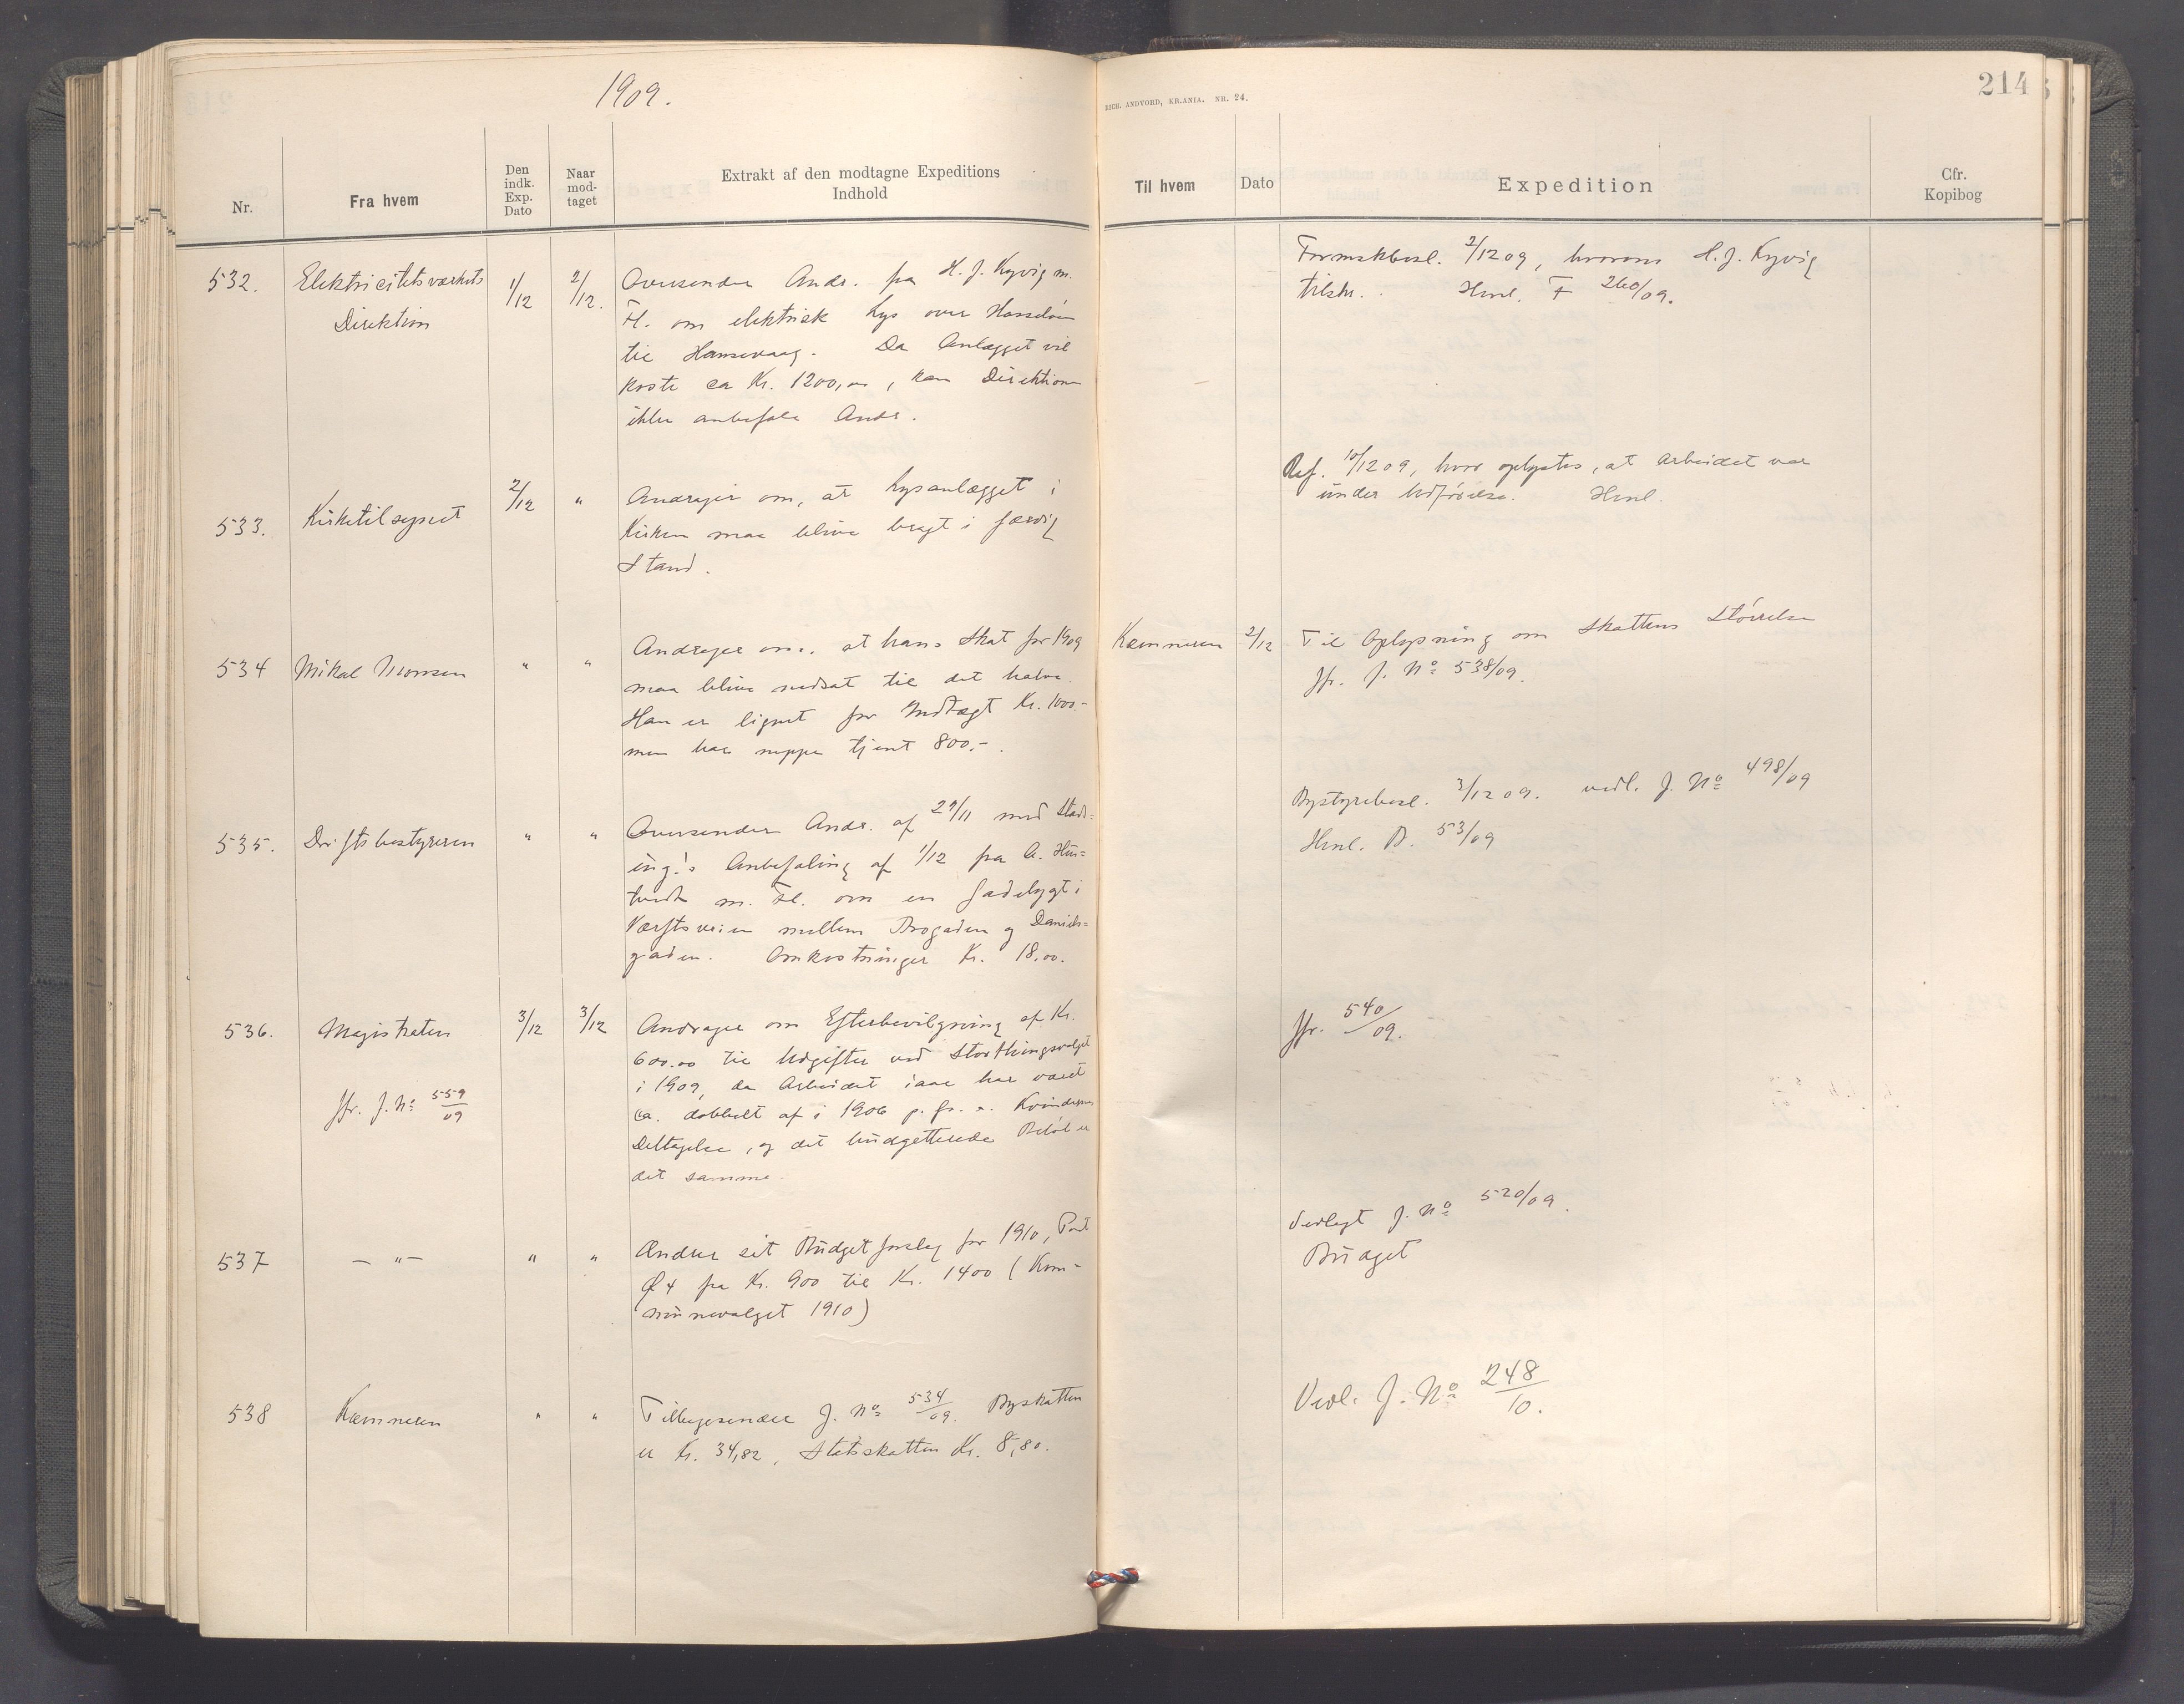 1909.
Nr.
Fra hvem
Den indk. Exp. Dato
Naar mod- taget
Extrakt af den modtagne Expeditions
Indhold
532.
Elektricitetsværkets
Direktion
1/12
2/12.
Oversender Andr. fra H. J. Kyvig m.
Fl. om elektrisk Lys over Hasseløen
til Hansevaag. Da Anlægget vil
koste ca Kr. 1200,00, kan Direktionen
ikke anbefale Andr.
533.
Kirketilsynet
2/12
"
Andrager om, at Lysanlægget i
Kirken maa blive bragt i færdig
Stand.
534
Mikal
"
"
Andrager om, at hans Skat for 1909
maa blive nedsat til det halve.
Han er lignet for Indtægt Kr. 1000.-
men har neppe tjent 800.-.
535.
Driftsbestyreren
"
"
Oversender Andr. af 29/11 med Stads=
ing's Anbefaling af 1/12 fra A. Hus=
tvedt m. Fl. om en Gadelygt i
Værftsveien mellem Brogaden og Daniels=
gaden. Omkostninger Kr. 18,00.
536.
Magistraten
3/12
3/12
Jfr. J. No 559/09
Andrager om Efterbevilgning af Kr.
600.00 til Udgifter ved Storthingsvalget
i 1909, da Arbeidet iaar har været
ca. dobbelt af i 1906 p. gr. a. Kvindernes
Deltagelse, og det budgetterede Beløb er
det samme.
537
— " —
"
"
Andrer sit Budgetforslag for 1910, Post
4 fra Kr. 900 til Kr. 1400 (Kom-
munevalget 1910)
538
Kæmneren
"
"
Tilbagesender J. No 534/09. Byskatten
er Kr. 34,82, Statsskatten Kr. 8,80.
RICH. ANDVORD, KR.ANIA. NR. 24.
214
Til hvem
Dato
Expedition
Cfr.
Kopibog
Formskbesl. 2/12 09, hvorom H. J. Kyvig
tilskr. Henl. F 260/09.
Ref. 10/12 09, hvor oplystes, at Arbeidet var
under Udførelse. Henl.
Kæmneren
2/12
Til Oplysning om Skattens Størrelse
Jfr. J. No 538/09.
Bystyrebesl. 3/12 09. vedl. J. No 498/09
Henl. B. 53/09
Jfr. 540/09.
Vedlagt J. No 520/09.
Budget
Vedl. J. No 248/10.